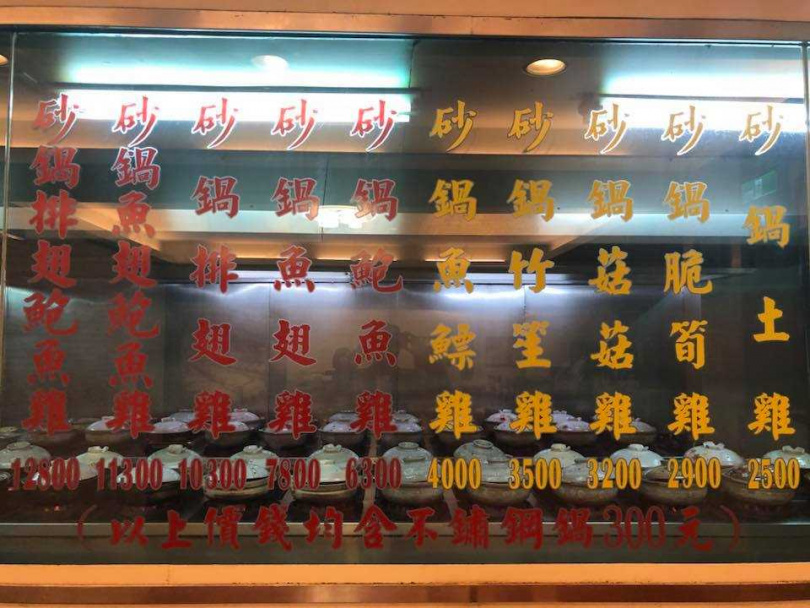 砂鍋土雞
2500
砂鍋脆筍雞
2900
砂鍋菇菇雞
3200
砂鍋竹笙雞
3500
砂鍋魚鰾雞
4000
砂鍋鮑魚雞
6300
砂鍋魚翅雞
7800
砂鍋排翅雞
10300
砂鍋魚翅鮑魚雞
11300
砂鍋排翅鮑魚雞
12800
(以上價錢均含不鏽鋼鍋300元)